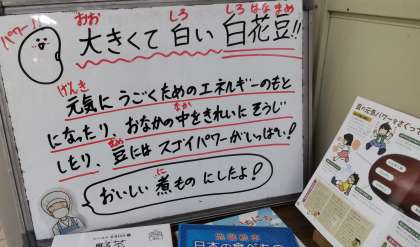 パワー!
おお しろ しろ はな まめ
大きくて 白い 白花豆!!
げんき
元気に うごくための エネルギーのもと
なか
になったり、おなかの中をきれいに そうじ
まめ
したり、豆には スゴイパワーがいっぱい!
に
おいしい 煮もの にしたよ!
日本の食べもの